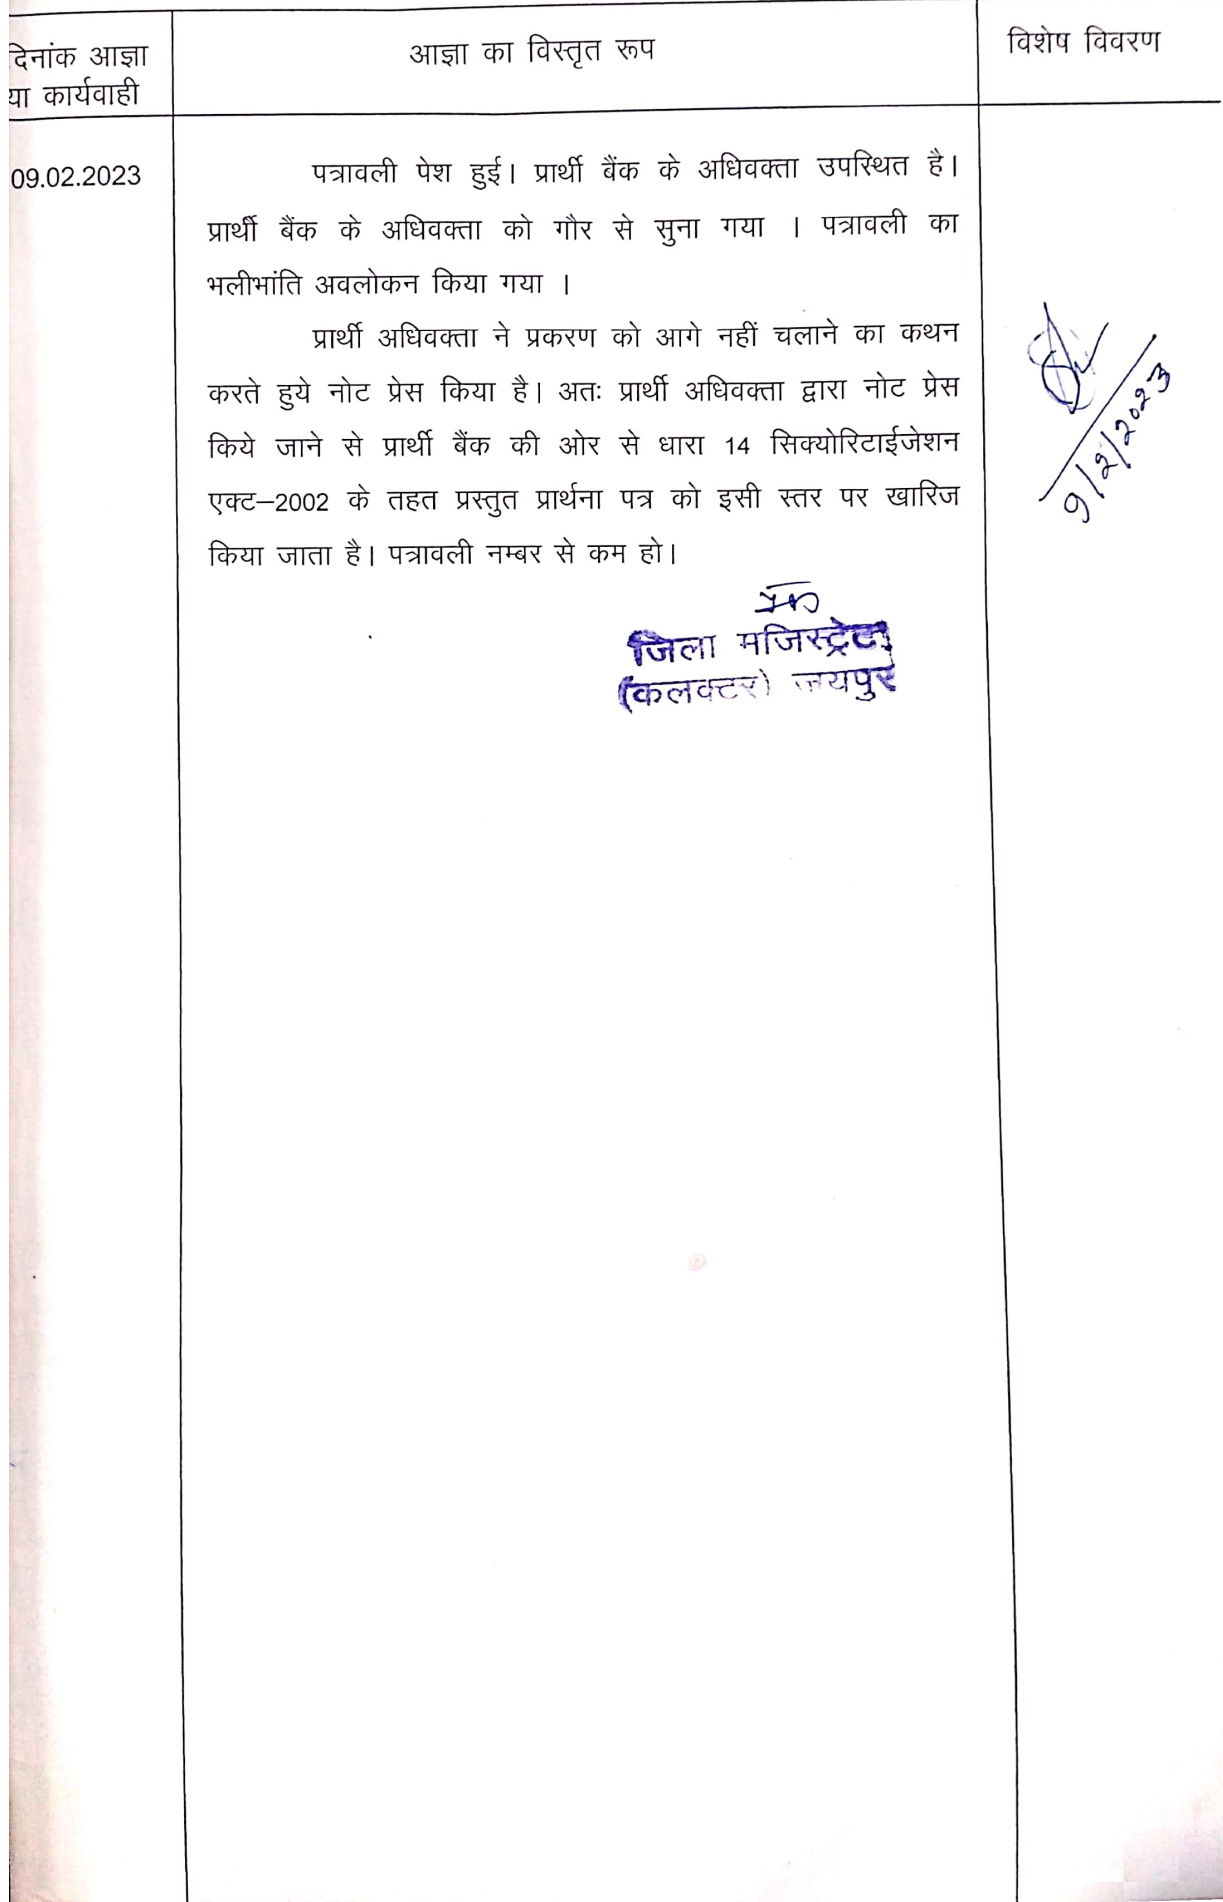 दिनांक आज्ञा
या कार्यवाही
आज्ञा का विस्तृत रूप
विशेष विवरण
09.02.2023
पत्रावली पेश हुई। प्रार्थी बैंक के अधिवक्ता उपस्थित है।
प्रार्थी बैंक के अधिवक्ता को गौर से सुना गया । पत्रावली का
भलीभांति अवलोकन किया गया ।
प्रार्थी अधिवक्ता ने प्रकरण को आगे नहीं चलाने का कथन
करते हुये नोट प्रेस किया है। अतः प्रार्थी अधिवक्ता द्वारा नोट प्रेस
किये जाने से प्रार्थी बैंक की ओर से धारा 14 सिक्योरिटाईजेशन
एक्ट–2002 के तहत प्रस्तुत प्रार्थना पत्र को इसी स्तर पर खारिज
किया जाता है। पत्रावली नम्बर से कम हो।
जिला मजिस्ट्रेट
(कलक्टर) जयपुर
9/2/2023